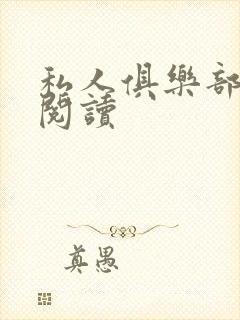 私人俱樂部
閱讀
真愚